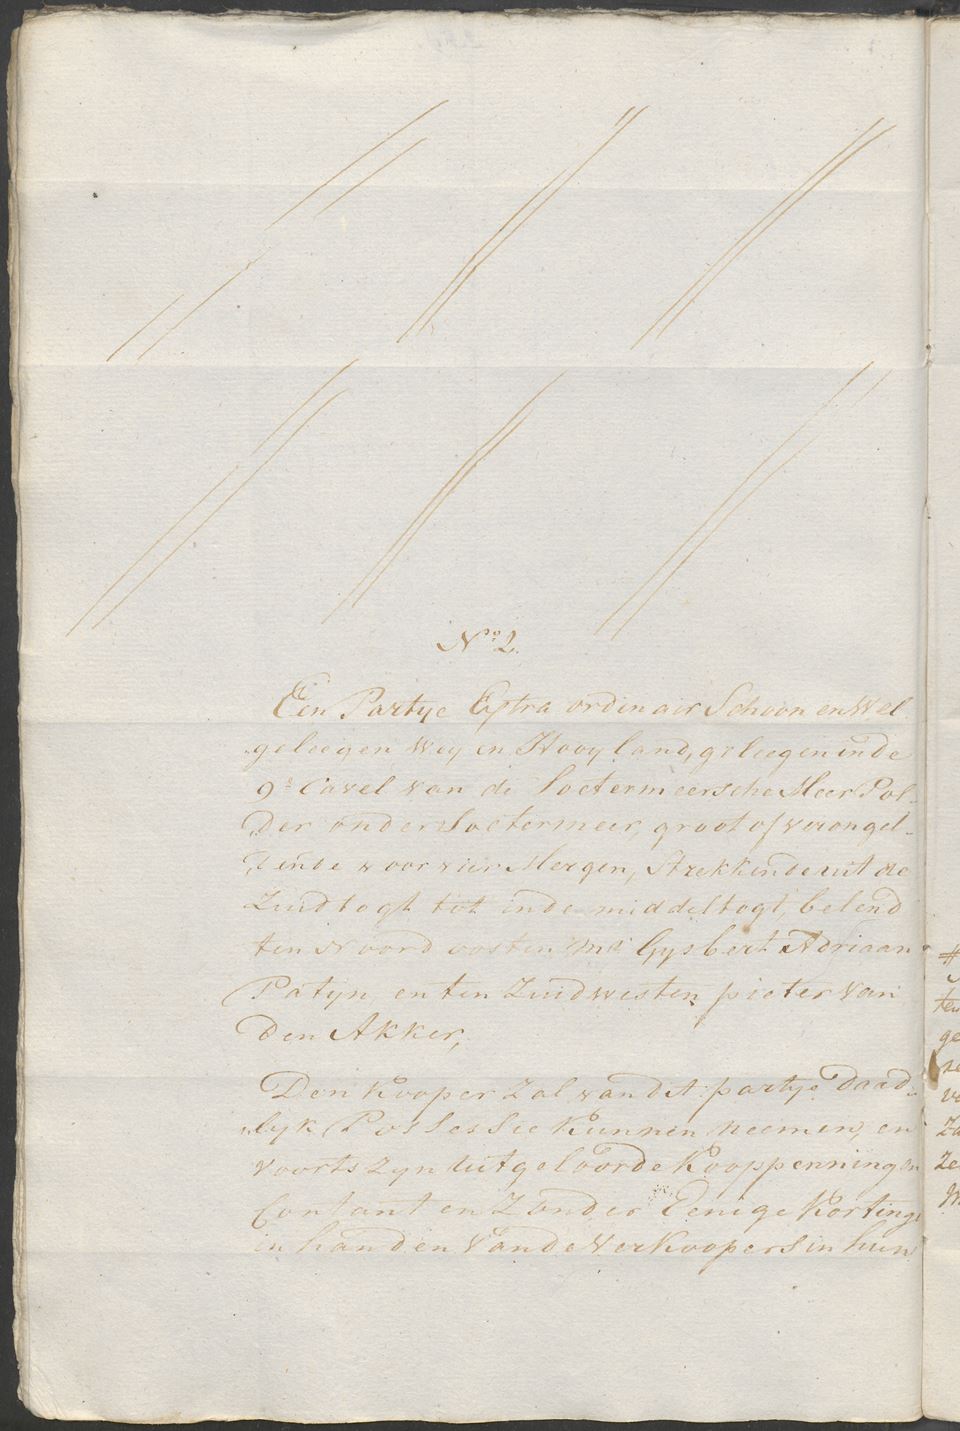 No. 2.
Een Partye Extra ordinair Schoon en Wel
geleegen Wey en Hooy land, geleegen in de
9e Cavel van de Soetermeersche Meer Pol-
der onder Soetermeer, groot of verongel-
dende voor vier Mergen, Strekkende uit de
Zuidtogt tot in de middeltogt, belend
ten Noord oosten Mr Gysbert Adriaan
Patyn, en ten Zuidwesten pieter van
den Akker,
Den Kooper zal van dit partye daad-
lyk Possessie kunnen neemen, en
voorts zyn uitgeloofde Kooppenningen
Contant en Zonder Eenige Korting
in handen van de Verkoopers in hun